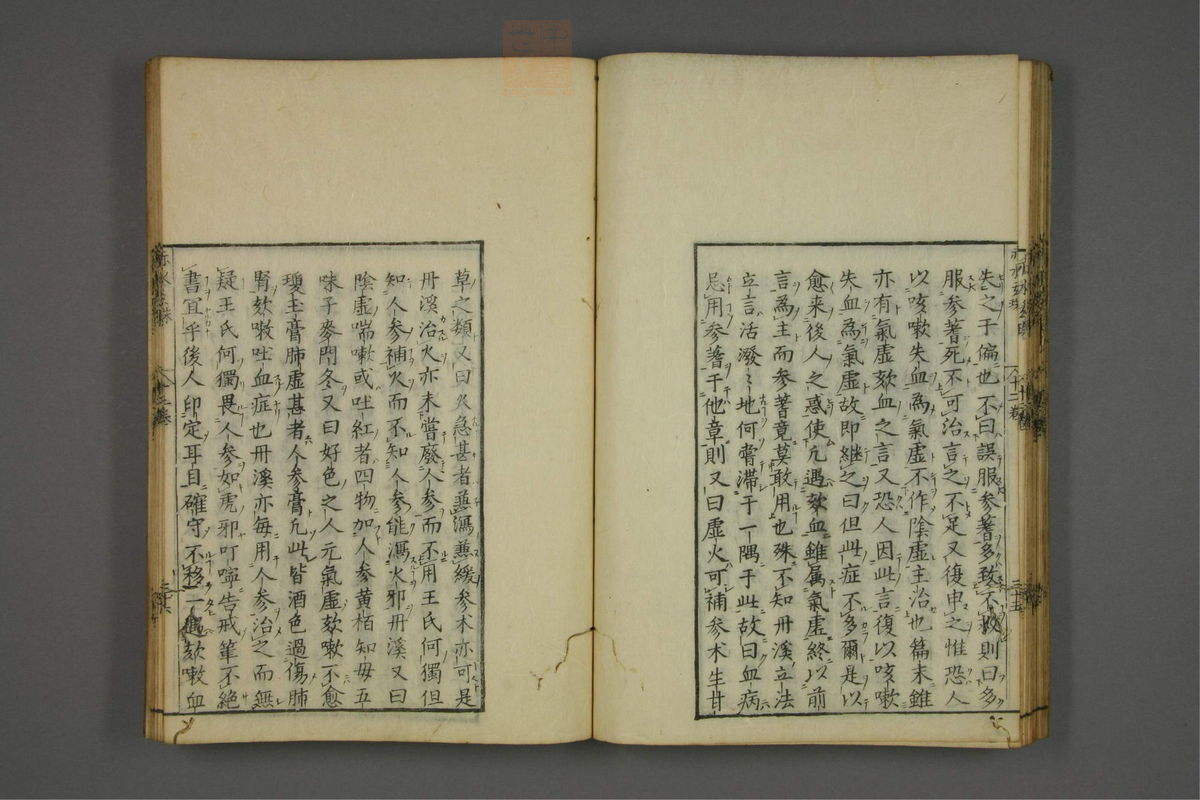 失之于偏也不曰誤服參蓍多致不救則曰多
服參蓍死不可治言之不足又復申之惟恐人
以咳嗽失血為氣虛不作陰虛主治也篇末雖
亦有氣虛欬血之言又恐人因此言復以咳嗽
失血為氣虛故即継之曰但此症不多爾是以
愈来後人之惑使凢遇欬血雖属氣虛終以前
言為主而參蓍竟莫敢用也殊不知丹溪立法
立言活潑〻地何嘗滯于一隅于此故曰血病
忌用參蓍于他章則又曰虛火可補參术生甘
草之類又曰火急甚者兼瀉兼緩參术亦可是
丹溪治火亦未嘗廢人參而不用王氏何獨但
知人參補火而不知人參能瀉火邪丹溪又曰
陰虛喘嗽或吐紅者四物加人參黄栢知毋五
味子麥門冬又曰好色之人元氣虛欬嗽不愈
瓊玉膏肺虛甚者人參膏凢此皆酒色過傷肺
腎欬嗽吐血症也丹溪亦每用人參治之而無
疑王氏何獨畏人參如虎邪叮嚀告戒筆不絕
書宜乎後人印定耳目確守不移一遇欬嗽血